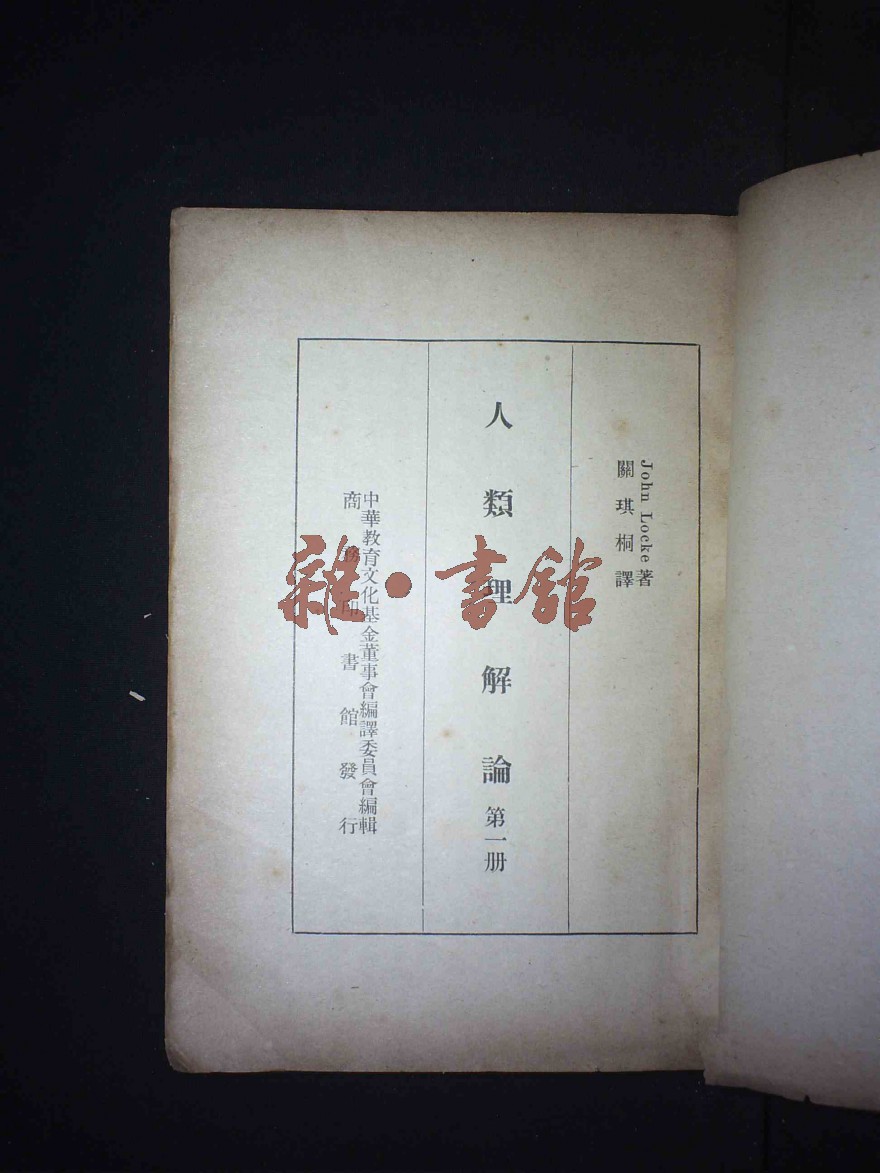 John Locke著
關琪桐譯
人類理解論 第一册
中華教育文化基金董事會編譯委員會編輯
商務印書館發行
雜·書館